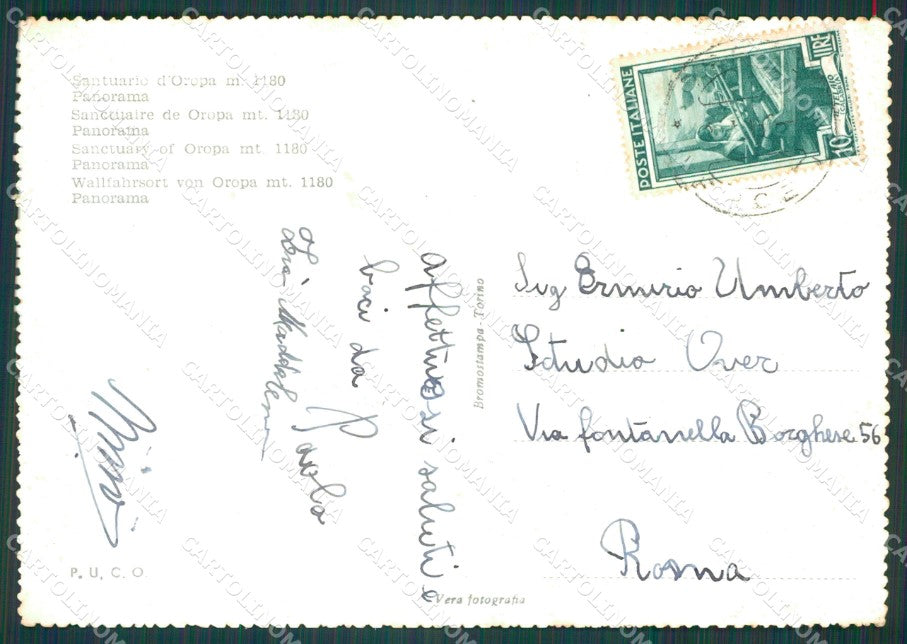 Santuario d'Oropa mt. 1180
Panorama
Sanctuaire de Oropa mt. 1180
Panorama
Sanctuary of Oropa mt. 1180
Panorama
Wallfahrsort von Oropa mt. 1180
Panorama
POSTE ITALIANE
LIRE
10
Affettuosi saluti e
baci da Paolo
Zia Maddalena
P. U. C. O.
Bromostampa - Torino
Vera fotografia
Ing Ermirio Umberto
Studio Over
Via fontanella Borghese 56
Roma
CARTOLINOMANIA